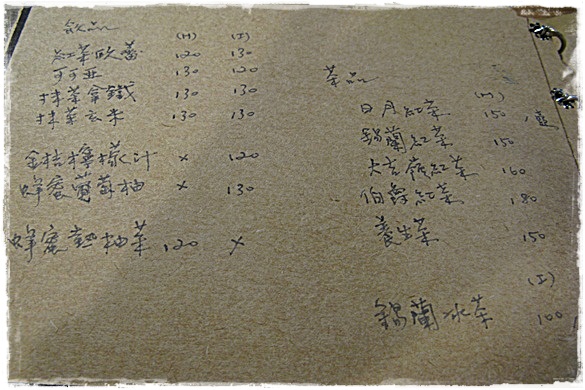 飲品 (H) (I)
紅茶歐蕾 120 130
可可亞 130 120
抹茶拿鐵 130 130
抹茶玄米 130 130
金桔檸檬汁 x 120
蜂蜜葡萄柚 x 130
蜂蜜熱柚茶 120 x
茶品
(H)
日月紅茶 150 /壺
錫蘭紅茶 150
大吉嶺紅茶 160
伯爵紅茶 180
養生茶 150
(I)
錫蘭冰茶 100